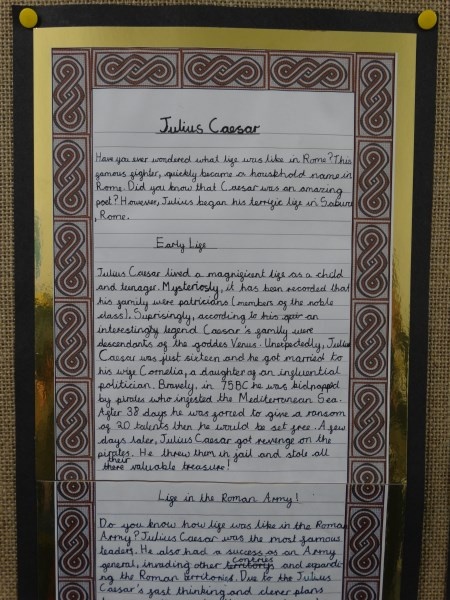 Julius Caesar
Have you ever wondered what life was like in Rome? This
famous fighter, quickly became a household name in
Rome. Did you know that Caesar was an amazing
poet? However, Julius began his terrific life in Sabura
, Rome.
Early Life
Julius Caesar lived a magnificent life as a child
and teenager. Mysteriosly, it has been recorded that
his family were patricians (members of the noble
class). Suprisingly, according to this an
interestingly legend Caesar's family were
descendants of the goddes Venus. Unexpectedly, Julius
Caesar was just sixteen and he got married to
his wife Cornelia, a daughter of an influential
politician. Bravely, in 75BC he was kidnapped
by pirates who infested the Mediterranean Sea.
After 38 days he was forced to give a ransom
of 20 talents then he would be set free. A few
days later, Julius Caesar got revenge on the
pirates. He threw them in jail and stole all
their
there valuable treasure!
Life in the Roman Army!
Do you know how life was like in the Roman
Army? Julius Caesar was the most famous
leaders. He also had a success as an Army
contries
general, invading other territorys and expandi-
ng the Roman territories. Due to the Julius
Caesar's fast thinking and clever plans